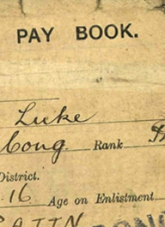 PAY BOOK.
Luke
Cong Rank
District.
16 Age on Enlistment